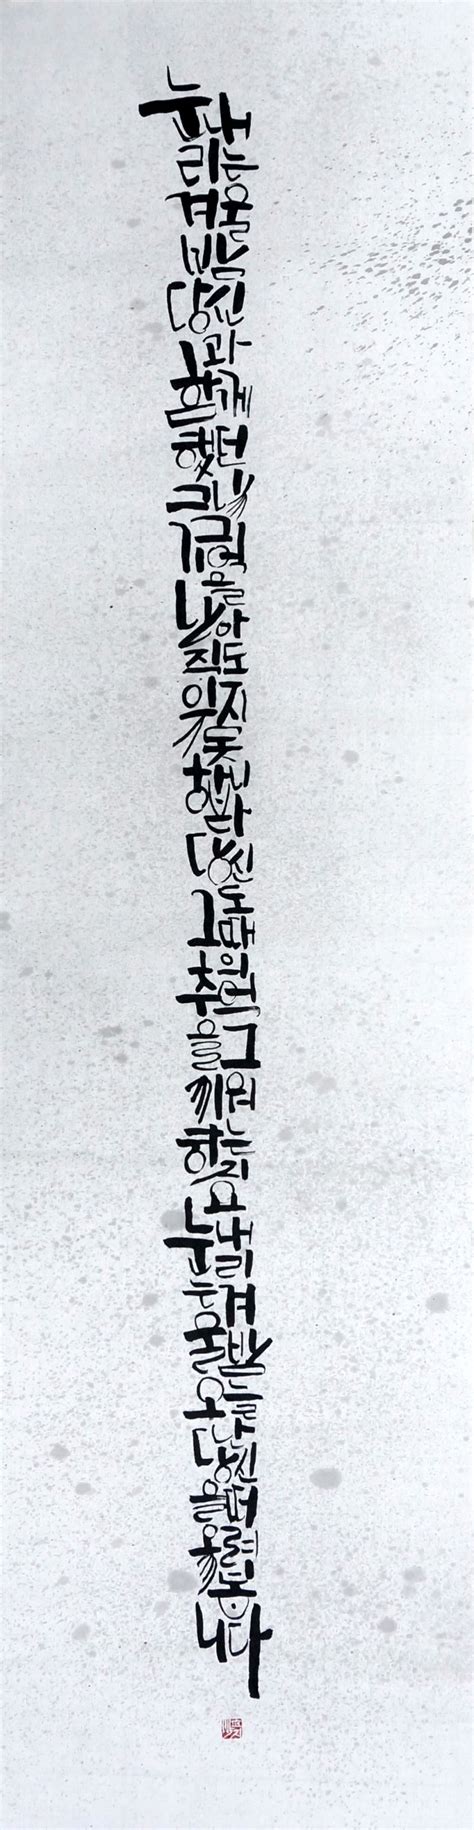 눈 내리는 겨울밤 당신과 함께 했던 그날 그 기억을 나 아직도 잊지 못합니다 당신도 그때의 추억을 그리워 하는지요 눈 내리는 겨울밤 오늘 난 당신을 떠올려 봅니다